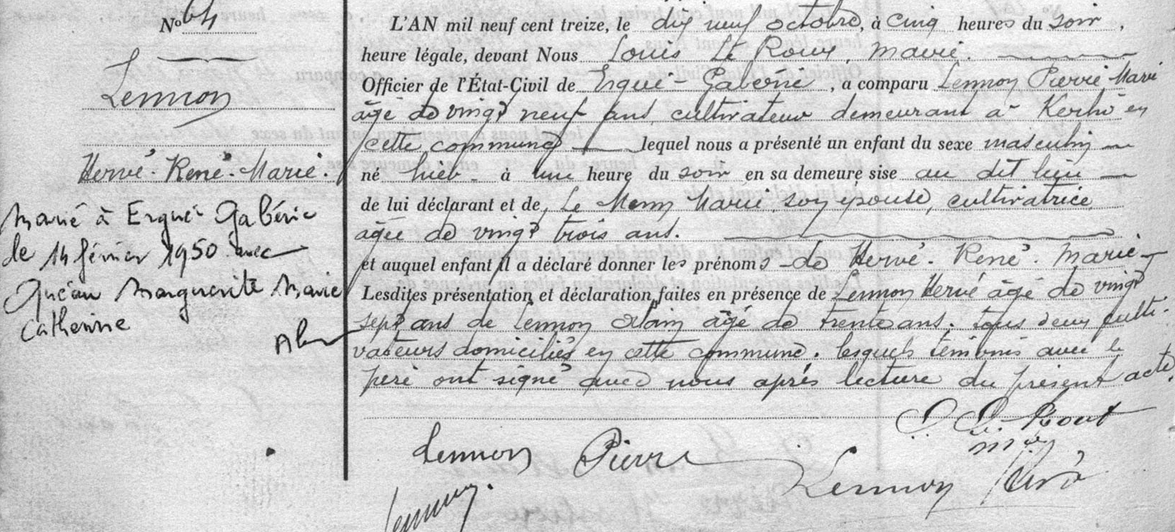 No 64
Lennon
Hervé-René-Marie.
Marié à Ergué Gabéric
le 14 février 1950 avec
Marguerite Marie
Catherine
L'AN mil neuf cent treize, le dix neuf octobre, à cinq heures du soir,
heure légale, devant Nous Louis Le Roux, maire.
Officier de l'État-Civil de Ergué-Gabéric, a comparu Lennon Pierre Marie
âgé de vingt neuf ans cultivateur demeurant à en
cette commune lequel nous a présenté un enfant du sexe masculin
né hier à une heure du soir en sa demeure sise au dit lieu
de lui déclarant et de Le Marie, son épouse, cultivatrice,
âgée de vingt trois ans.
et auquel enfant il a déclaré donner les prénoms de Hervé-René-Marie
Lesdites présentation et déclaration faites en présence de Lennon Hervé âgé de vingt
sept ans de Lennon Alain âgé de trente ans, tous deux culti-
vateurs domiciliés en cette commune. lesquels témoins avec le
père ont signé avec nous après lecture du présent acte.
L. Le Roux
Lennon Pierre
Lennon Hervé
Lennon